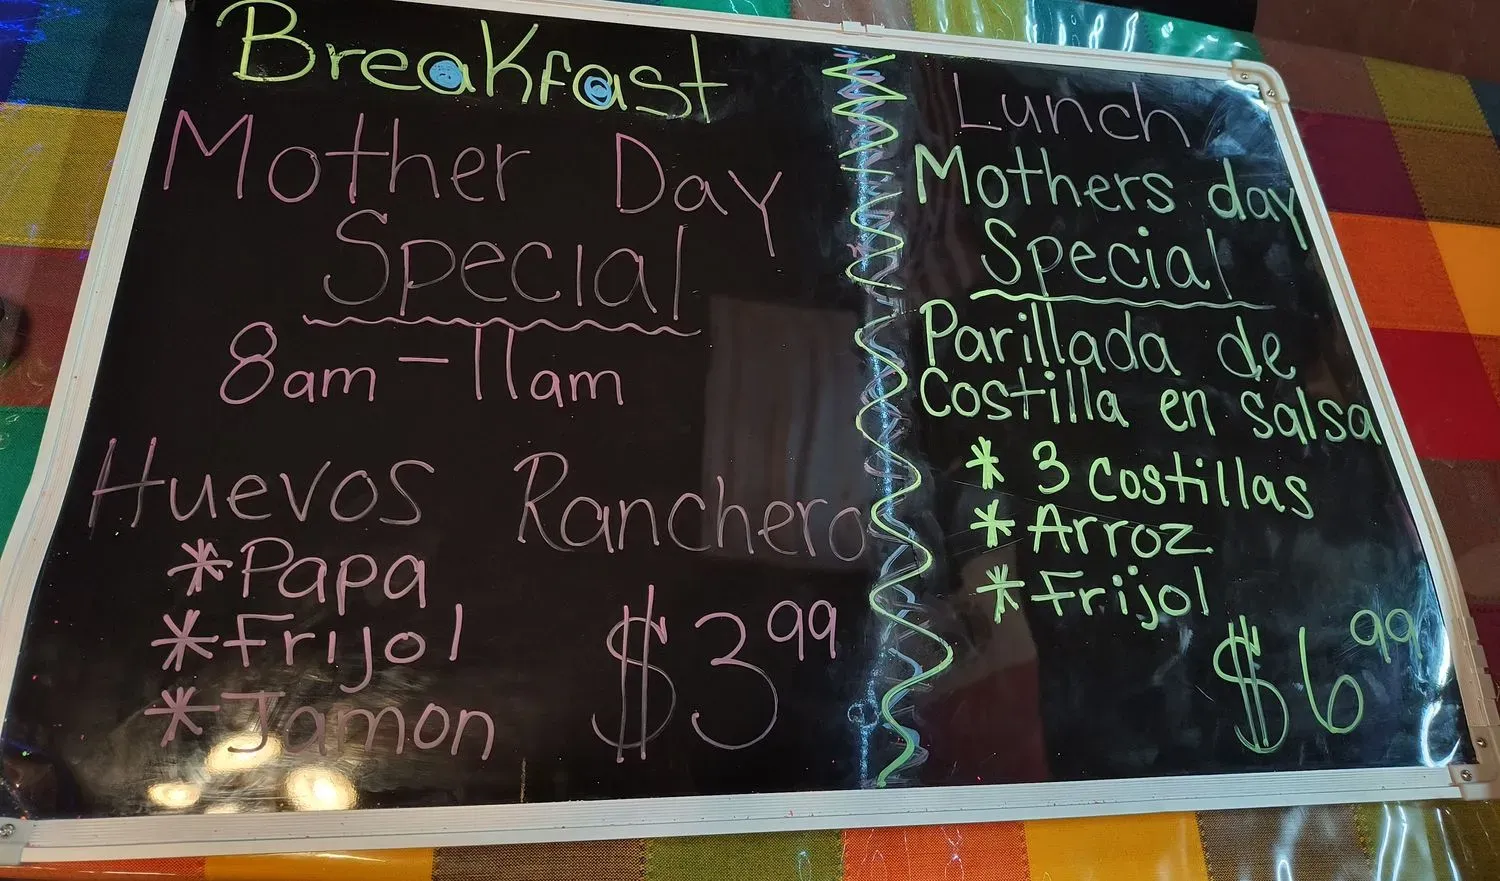 Breakfast
Mother Day
Special
8am - 11am
Huevos Ranchero
* Papa
* Frijol
* Jamon
$3.99
Lunch
Mothers day
Special
Parillada de
Costilla en salsa
* 3 costillas
* Arroz
* Frijol
$6.99